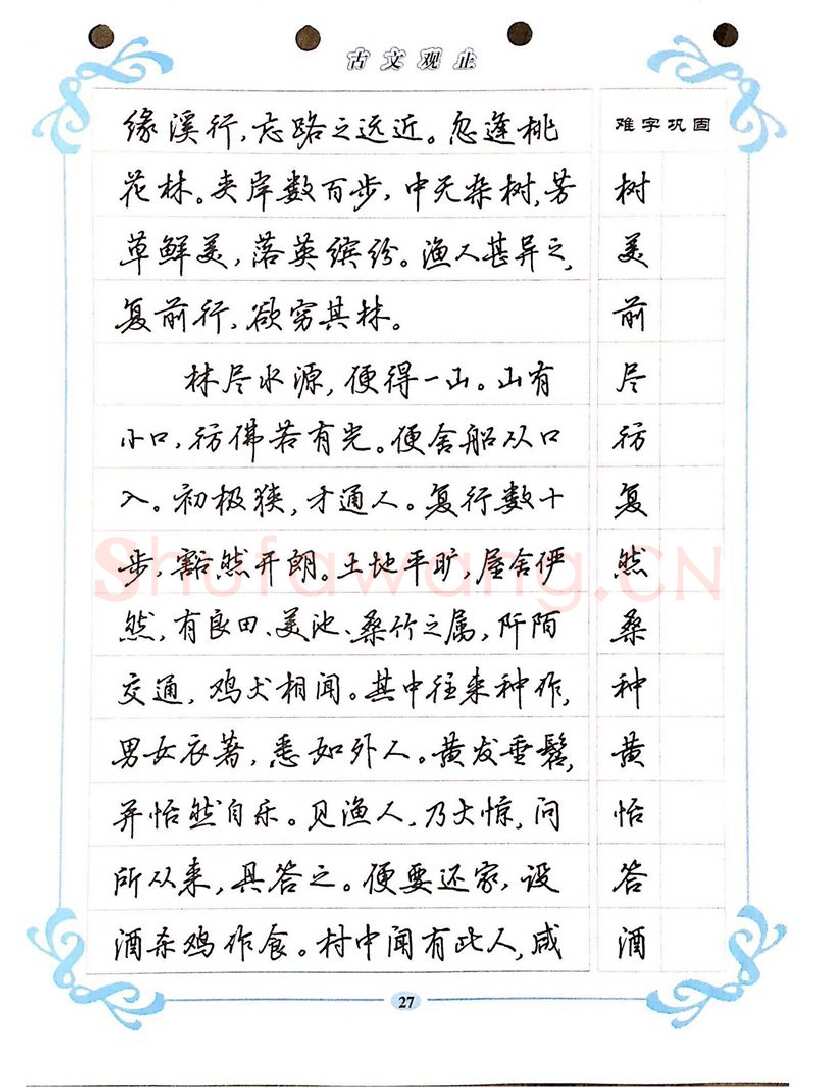 古文观止
缘溪行，忘路之远近。忽逢桃
花林。夹岸数百步，中无杂树，芳
草鲜美，落英缤纷。渔人甚异之，
复前行，欲穷其林。
林尽水源，便得一山。山有
小口，彷佛若有光。便舍船从口
入。初极狭，才通人。复行数十
步，豁然开朗。土地平旷，屋舍俨
然，有良田、美池、桑竹之属，阡陌
交通，鸡犬相闻。其中往来种作，
男女衣著，悉如外人。黄发垂髫，
并怡然自乐。见渔人，乃大惊，问
所从来，具答之。便要还家，设
酒杀鸡作食。村中闻有此人，咸
难字巩固
树
美
前
尽
彷
复
然
桑
种
黄
怡
答
酒
Shufawang.CN
27